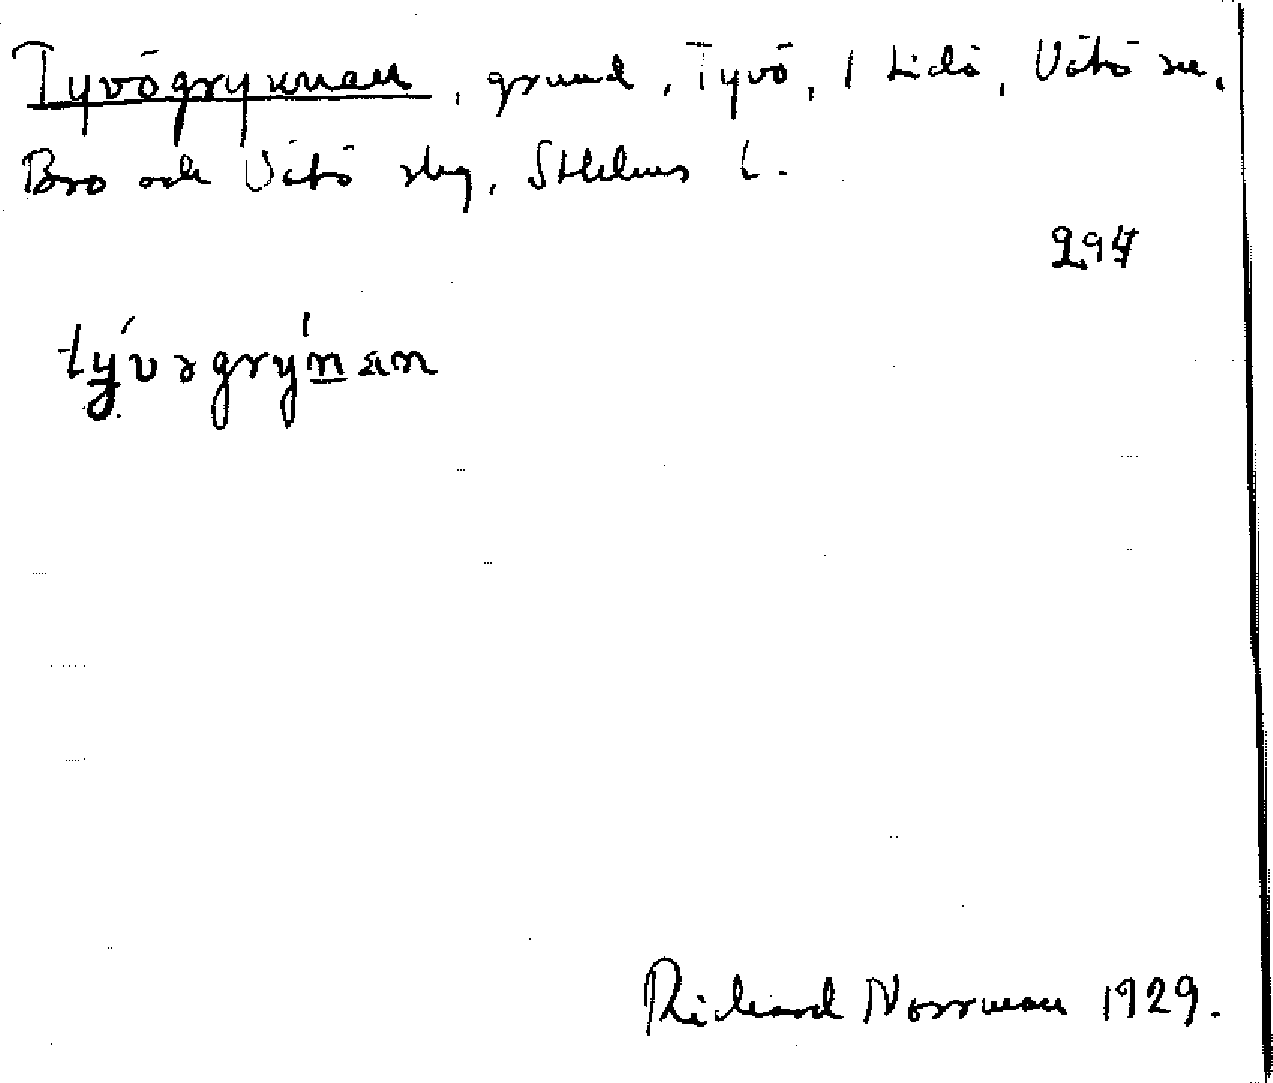 Tyvögrynnan, grund, Tyvö, 1 Lidö, Vätö sn.
Bro och Vätö skg, Sthlms l.
294
tývǝgrýnan
Richard Norrman 1929.